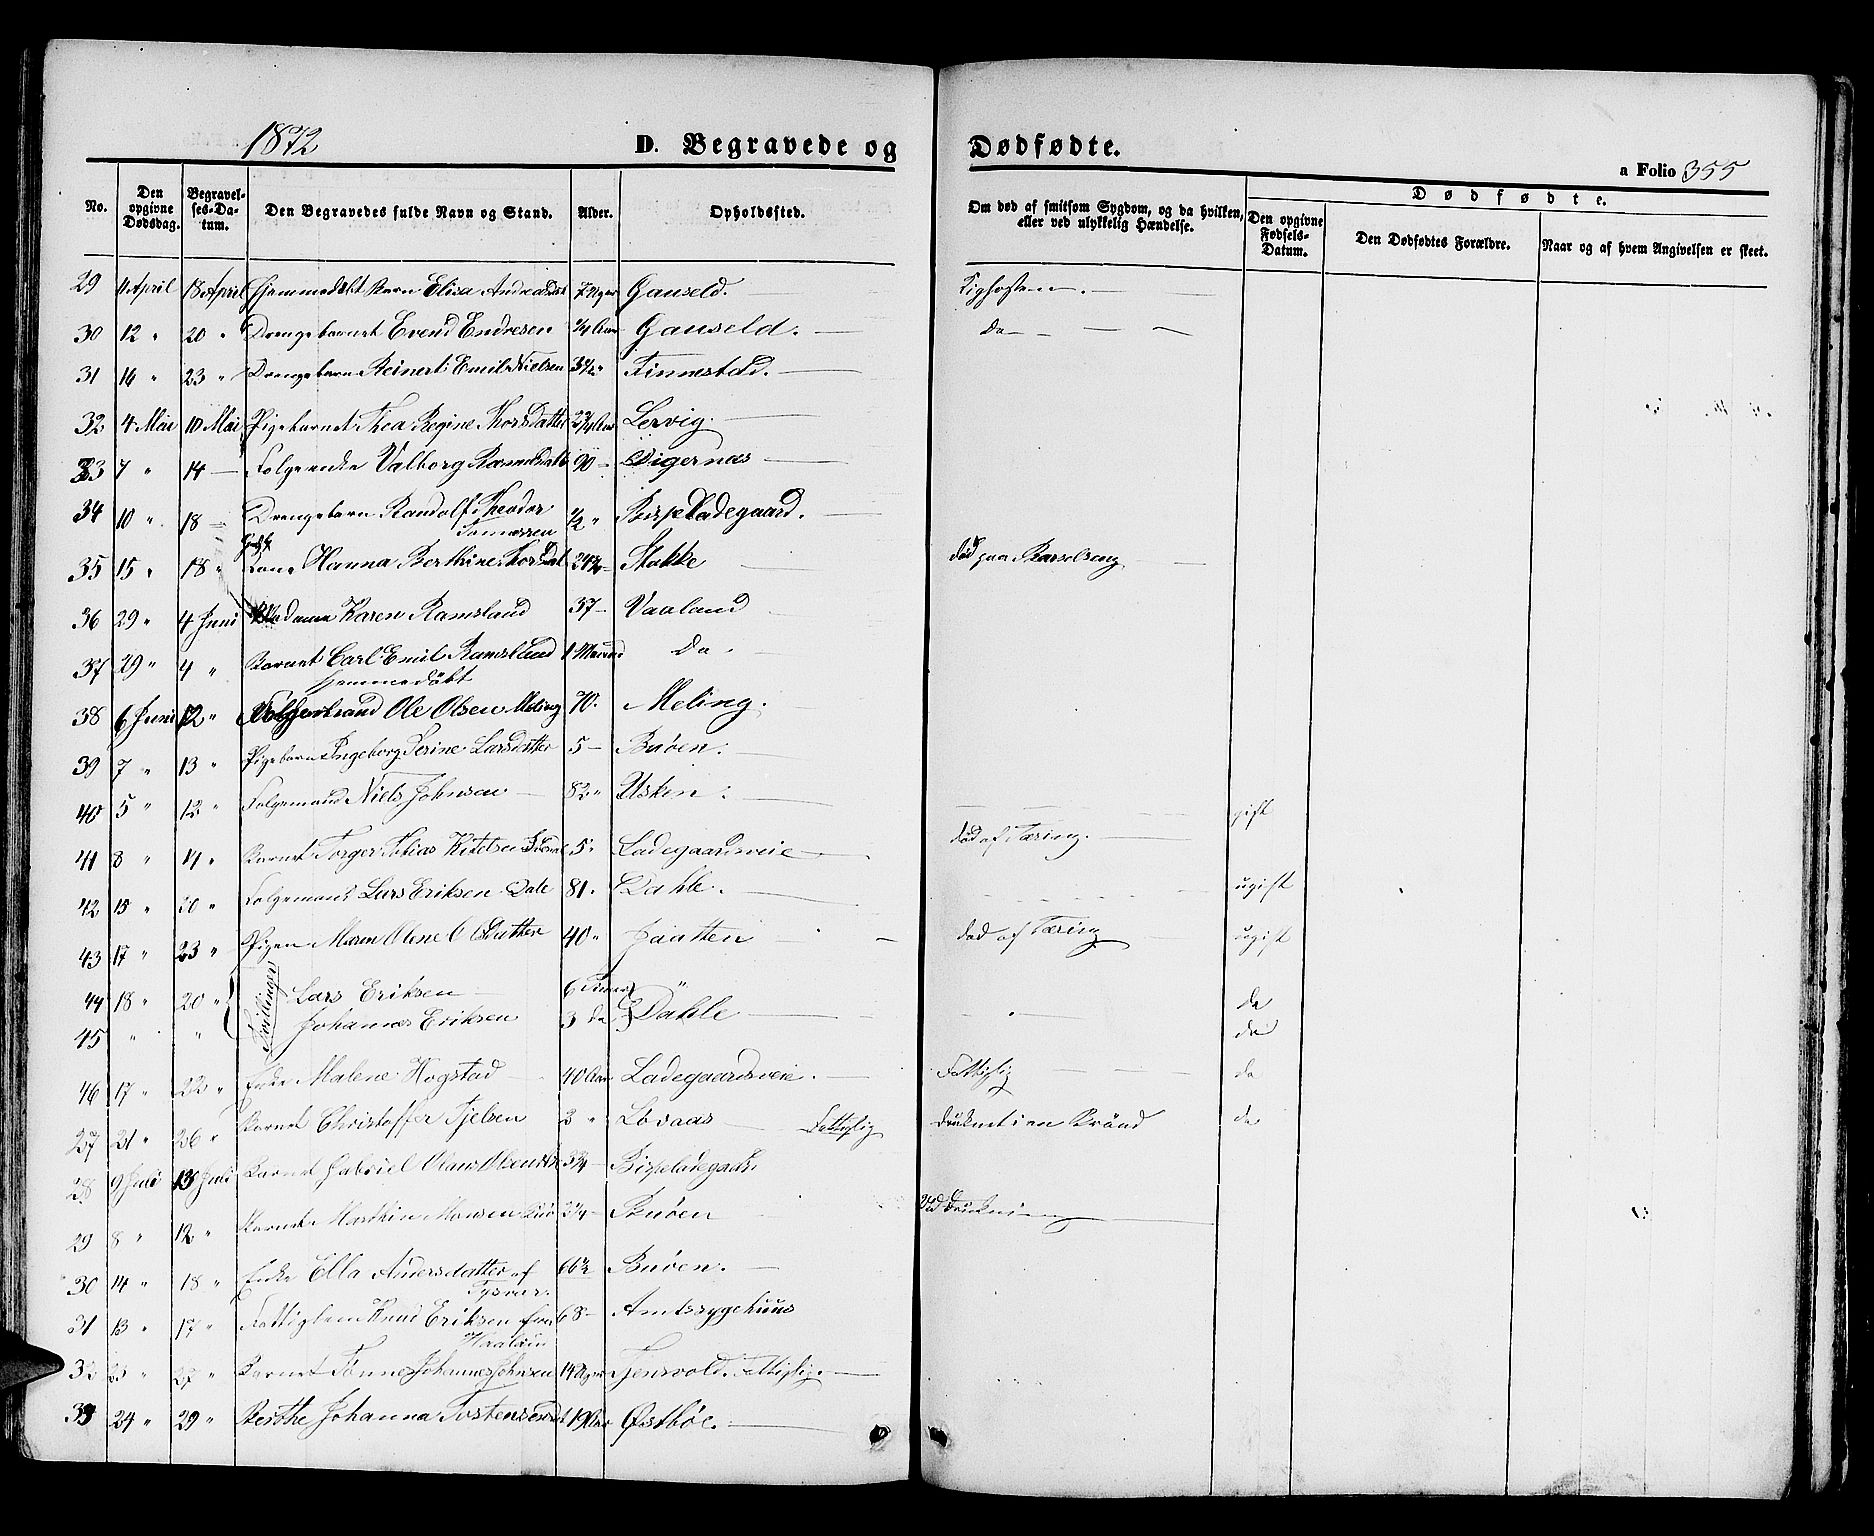 1872
D. Begravede og Dødfødte.
a Folio 355
No. Den opgivne Dødsdag. Begravelses-Datum. Den Begravedes fulde Navn og Stand. Alder. Opholdssted. Om død af smitsom Sygdom, og da hvilken, eller ved ulykkelig Hændelse. Dødfødte.
Den opgivne Fødsels-Datum. Den Dødfødtes Forældre. Naar og af hvem Angivelsen er skeet.
29 11 April 18 April Hjemmedøbt Barn Elisa Andreasdat 7 Uger Gauseld. Kighosten.
30 12 " 20 " Drengebarnet Evend Endresen 1/4 Aar Gauseld. Do
31 16 " 23 " Drengebarn Reinert Emil Nielsen 3 1/2 " Finnestad.
32 4 Mai 10 Mai Pigebarnet Thea Regine Thorsdatter 2 3/4 Aar Lervig.
33 7 " 14 — Folgeenke Valborg Rasmusdatt 90 — Digernæs
34 10 " 18 — Drengebarn Randolf Theodor Tønnessen 1/2 " Bispeladegaard.
35 15 " 18 " Kone Hanna Berthine Thorsdat Stokke død paa Barselseng
36 29 " 4 Juni Madame Karen Ramsland 37 — Vaaland
37 29 " 4 " Barnet Carl Emil Ramsland 1 Maaned Do
Hjemmedøbt
38 6 Juni 12 " Ole Olsen Meling 70. Meling.
39 7 " 13 " Pigebarn Ingeborg Serine Larsdatter 5 — Buøen.
40 5 " 12 " Folgemand Niels Johnsen 82 " Usken. gift
41 8 " 14 " Barnet Torger Tobias Kitelsen 5 " Ladegaardsveie død af Tæring.
42 15 " 20 " Folgemand Lars Eriksen Dale 81. Dahle. ugift
43 17 " 23 " Pigen Maren Olene O Datter 40 " Jaatten død af Tæring ugift
44 18 " 20 " Tvillinger Lars Eriksen 6 Timer " do
45 " " Johannes Eriksen 3 do Dahle do
46 17 " 22 " Enke Malene Hogstad 40 Aar Ladegaardsveie. Fattiglig do
27 21 " 26 " Barnet Christoffer Tjelsen 3 " Lovaas Fattiglig druknet i en Brønd do
28 9 Juli 13 Juli Barnet Gabriel Olaus Olsen 3 3/4 — Bispeladegade
29 8 " 12 " Barnet Marthin Monsen 2 1/4 — Buøen Ved Drukning
30 14 " 18 " Enke Ella Andersdatter af Tysvær. 66 1/2 Buøen.
31 13 " 17 " Fattiglem Knud Eriksen fra Haaland 68 — Amtssygehuus
32 23 " 27 " Barnet Tønne Johannes Johnsen 14 Uger Tjensvold. Fattiglig.
33 24 " 29 " Berthe Johanna Tostensdat 19 Aar Østbøe.